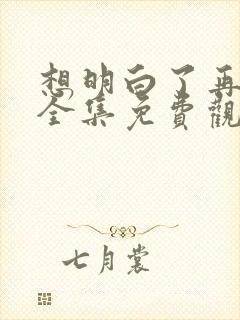 想明白了再
全集免費觀
七月裳